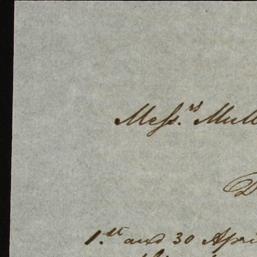 Mess.rs Mull
D
1.st and 30 Apri